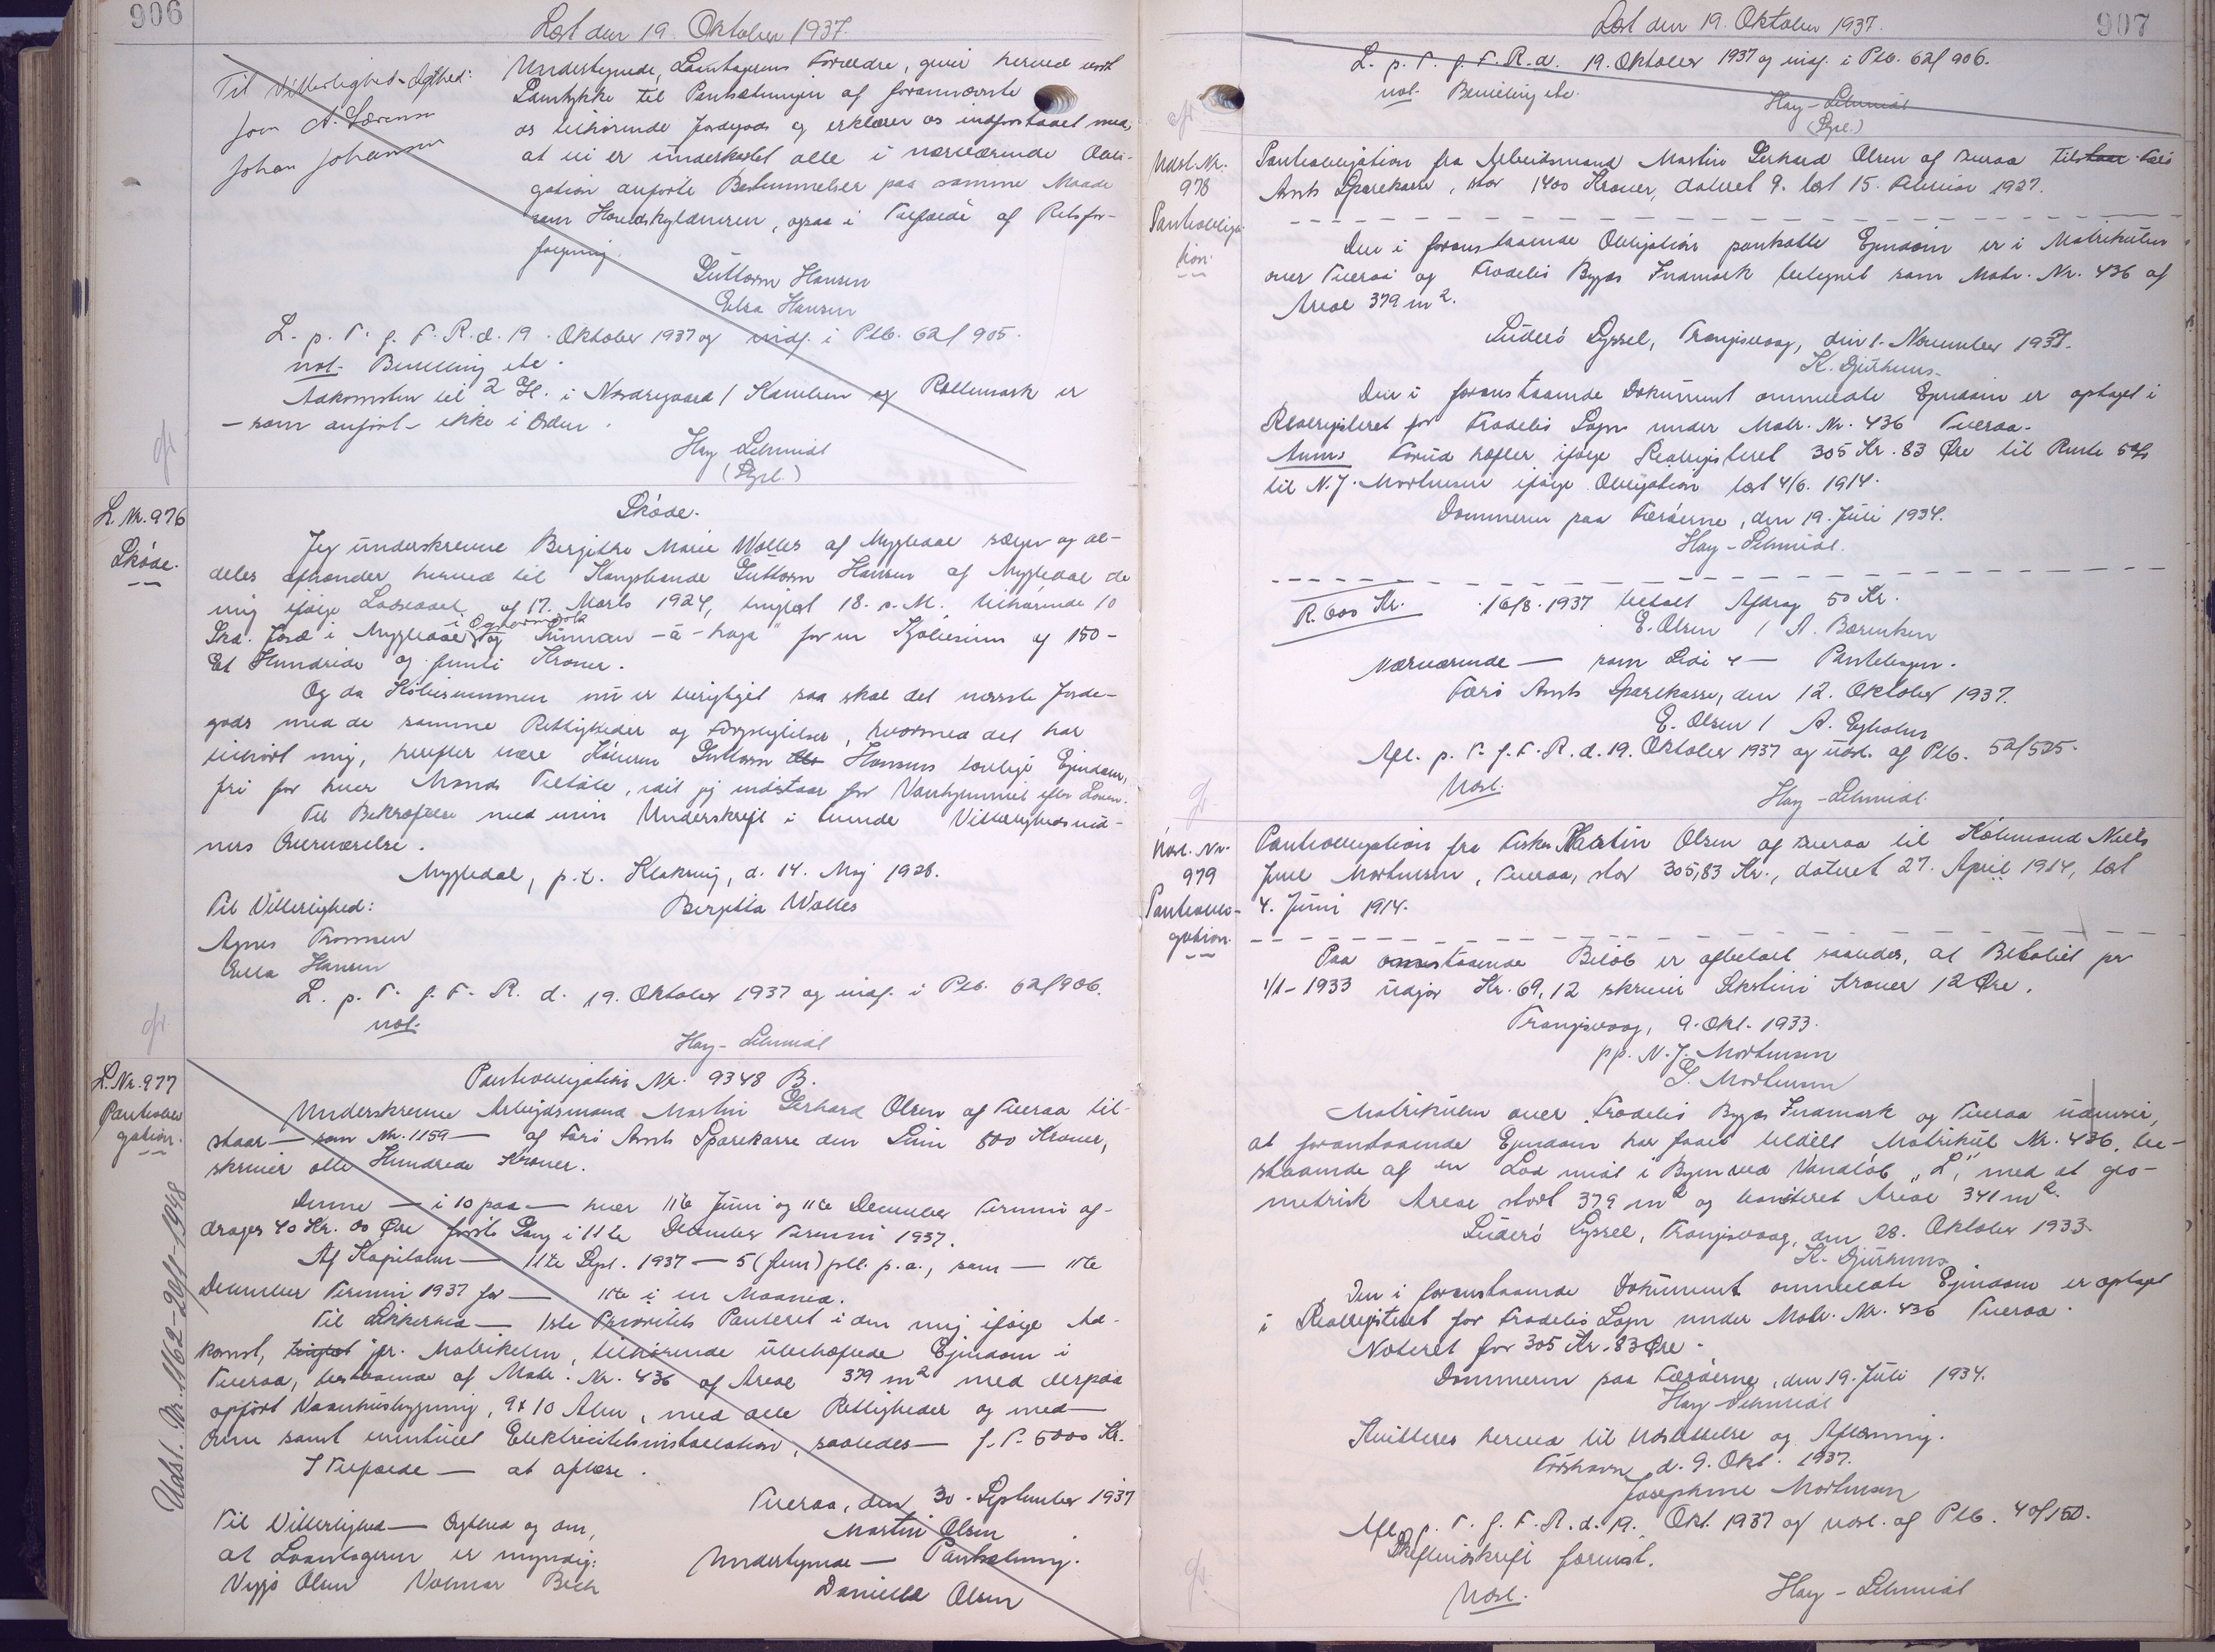 906
Læst den 19. Oktober 1937.
Til Vitterlighed - Ægthed:
Jon A. Sørensen
Johan Johansen
Undertegnede, Laantagerens Forældre, giver herved vort
Samtykke til Pantsætningen af forannævnte
os tilhørende Jordegods og erklærer os indforstaaet med,
at vi er underkastet alle i nærværende Obli-
gation anførte Bestemmelser paa samme Maade
som Hovedskyldneren, ogsaa i Tilfælde af Retsfor-
følgning.
Guttorm Hansen
Elsa Hansen
L. p. T. f. F. R. d. 19. Oktober 1937 og indf. i Ptb. 62/905.
not. Bevilling etc.
Adkomsten til 2 Gl. i Nordregaard / og Rættemark er
- som anført - ikke i Orden.
Hay-Schmidt
(Sprl.)
L. Nr. 976
Skøde.
Skøde.
Jeg underskrevne Bergithe Marie Wolles af Mygledal sælger og al-
deles afhænder herved til Kongsbonde Guttorm Hansen af Mygledal de
mig ifølge Lodseddel af 17. Marts 1924, tinglæst 18. s. M. tilhørende 10
Skd. Jord i Mygledal i og "Sunnan-á-haga" for en Købesum af 150-
Et Hundrede og femti Kroner.
Og da Købesummen nu er berigtiget saa skal det nævnte Jorde-
gods med de samme Rettigheder og Forpligtelser, hvormed det har
tilhørt mig, herefter være Køberen Guttorm Hansens lovlige Ejendom,
fri for hver Mands Tiltale, idet jeg indstaar for Vanhjemmel efter Loven.
Til Bekræftelse med min Underskrift i tvende Vitterlighedsvid-
ners Overværelse.
Mygledal, p.t. Klaksvig, d. 14. Maj 1928.
Til Vitterlighed:
Birgitta Wolles
Agnes Thomsen
Elsa Hansen
L. p. T. f. F. R. d. 19. Oktober 1937 og indf. i Ptb. 62/906.
not.
Hay-Schmidt
L. Nr. 977
Pantobli-
gation.
Uds. Nr. 1162-20/11-1948
Pantobligation Nr. 9348 B.
Underskrevne Arbejdsmand Martin Gerhard Olsen af Tveraa til-
staar — som Nr. 1159 — af Færø Amts Sparekasse den Sum 800 Kroner,
skriver otte Hundrede Kroner.
Denne — i 10 paa — hver 11te Juni og 11te December Termin af-
drages 40 Kr. 00 Øre første Gang i 11te December Termin 1937.
Af Kapitalen — 11te Sept. 1937 — 5 (fem) pCt. p.a., som — 11te
December Termin 1937 for — 11te i en Maaned.
Til Sikkerhed — 1ste Prioritets Panteret i den mig ifølge Ad-
komst, tinglæst jfr. Matrikelen, tilhørende ubehæftede Ejendom i
Tveraa, bestaaende af Matr. Nr. 436 af Areal 379 m² med derpaa
opført Vaanhusbygning, 9 x 10 Alen, med alle Rettigheder og med —
Ovne samt eventuel Elektricitetsinstallation, saaledes — f. T. 5000 Kr.
I Tilfælde — at aflæse.
Tveraa, den 30. September 1937
Til Vitterlighed — Ægthed og om,
Martin Olsen
at Laantageren er myndig:
Undertegnede — Pantsætning.
Viggo Olsen Valmar Bech
Daniella Olsen
907
Læst den 19. Oktober 1937.
L. p. T. f. F. R. d. 19. Oktober 1937 og indf. i Ptb. 62/906.
not. Bevilling etc.
Hay-Schmidt
(Sprl.)
Udsl. Nr.
978
Pantobliga-
tion.
Pantobligation fra Arbeidsmand Martin Gerhard Olsen af Tveraa til Færø
Amts Sparekasse, stor 1400 Kroner, dateret 9. læst 15. Februar 1927.
Den i foranstaaende Obligation pantsatte Ejendom er i Matrikulen
over Tveraa og Frodebø Bygds Indmark betegnet som Matr. Nr. 436 af
Areal 379 m².
Suderø Syssel, Trangisvaag, den 1. November 1933.
K. Djurhuus
Den i foranstaaende Dokument ommeldte Ejendom er optaget i
Realregisteret for Frodebø Sogn under Matr. Nr. 436 Tveraa.
Anm: Forud hæfter ifølge Realregisteret 305 Kr. 83 Øre til Rente 5%
til N. J. Mortensen ifølge Obligation læst 4/6. 1914.
Dommeren paa Færøerne, den 19. Juli 1934.
Hay-Schmidt.
R. 600 Kr.
16/8. 1937 betalt Afdrag 50 Kr.
E. Olsen / A. Bærentsen
Nærværende — som Side 4 — Pantebogen.
Færø Amts Sparekasse, den 12. Oktober 1937.
E. Olsen / A. Egholm
Afl. p. T. f. F. R. d. 19. Oktober 1937 og udsl. af Ptb. 52/525.
Udsl.
Hay-Schmidt.
Udsl. Nr.
979
Pantobli-
gation.
Pantobligation fra Fisker Martin Olsen af Tveraa til Købmand Niels
Juul Mortensen, Tveraa, stor 305,83 Kr., dateret 27. April 1914, læst
4. Juni 1914.
Paa omstaaende Beløb er afbetalt saaledes, at Beløbet pr
1/1-1933 udgør Kr. 69,12 skriver Sekstini Kroner 12 Øre.
Trangisvaag, 9. Okt. 1933.
pp. N. J. Mortensen
S. Mortensen
Matrikulen over Frodebø Bygds Indmark og Tveraa udviser,
at foranstaaende Ejendom har faaet tildelt Matrikul Nr. 436, be-
staaende af en Lod midt i Byen ved Vandløb "L", med et geo-
metrisk Areal stort 379 m² og boniteret Areal 341 m².
Suderø Syssel, Trangisvaag, den 28. Oktober 1933.
K. Djurhuus
Den i foranstaaende Dokument ommeldte Ejendom er optaget
i Realregisteret for Frodebø Sogn under Matr. Nr. 436 Tveraa.
Noteret for 305 Kr. 83 Øre.
Dommeren paa Færøerne, den 19. Juli 1934.
Hay-Schmidt
Kvitteres herved til Udslettelse og Aflæsning.
Tórshavn d. 9. Okt. 1937.
Josephine Mortensen
Afl. p. T. f. F. R. d. 19. Okt. 1937 og udsl. af Ptb. 40/150.
Skifteudskrift forevist.
Udsl.
Hay-Schmidt